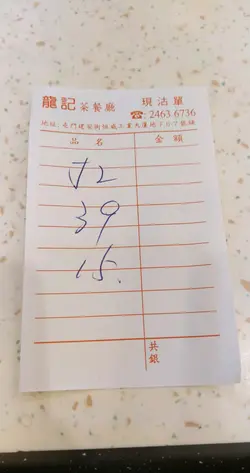 龍記茶餐廳 現沽單
☎: 2463 6736
地址: 屯門建榮街恒威工業大廈地下
品名 金額
52
39
15.
共銀